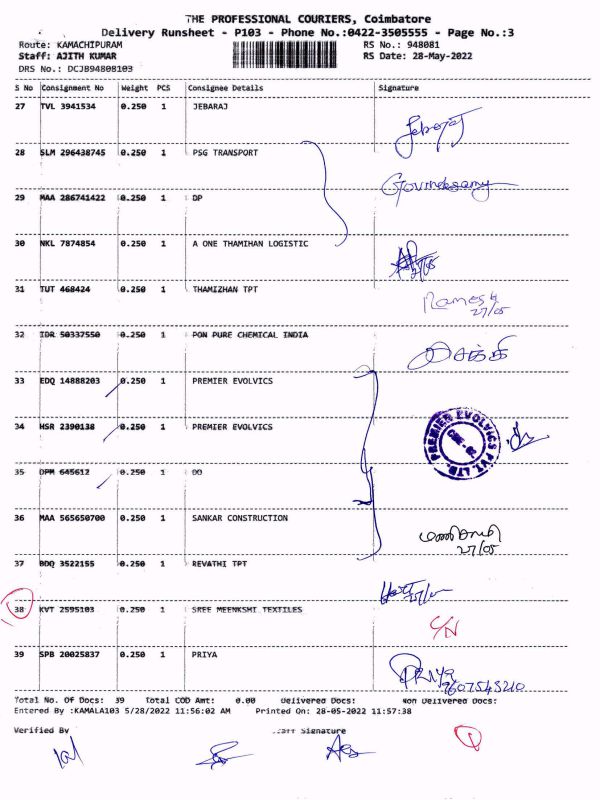 THE PROFESSIONAL COURIERS, Coimbatore
Delivery Runsheet - P103 - Phone No.:0422-3505555 - Page No.:3
Route: KAMACHIPURAM RS No.: 948081
Staff: AJITH KUMAR RS Date: 28-May-2022
DRS No.: DCJB94808103
S No Consignment No Weight PCS Consignee Details Signature
27 TVL 3941534 0.250 1 JEBARAJ
Jebaraj
28 SLM 296438745 0.250 1 PSG TRANSPORT
Govindasamy
29 MAA 286741422 0.250 1 DP
30 NKL 7874854 0.250 1 A ONE THAMIHAN LOGISTIC
27/05
31 TUT 468424 0.250 1 THAMIZHAN TPT
Ramesh
27/05
32 IDR 50337550 0.250 1 PON PURE CHEMICAL INDIA
33 EDQ 14888203 0.250 1 PREMIER EVOLVICS
34 HSR 2390138 0.250 1 PREMIER EVOLVICS
PREMIER EVOLVICS PVT. LTD.
CBE - 02
35 DPM 645612 0.250 1 DD
36 MAA 565650700 0.250 1 SANKAR CONSTRUCTION
27/05
37 BDQ 3522155 0.250 1 REVATHI TPT
38 KVT 2595103 0.250 1 SREE MEENKSHI TEXTILES
C/N
39 SPB 20025837 0.250 1 PRIYA
PRIYA
9607543210
Total No. Of Docs: 39 Total COD Amt: 0.00 Delivered Docs: Non Delivered Docs:
Entered By :KAMALA103 5/28/2022 11:56:02 AM Printed On: 28-05-2022 11:57:38
Verified By Staff Signature
1